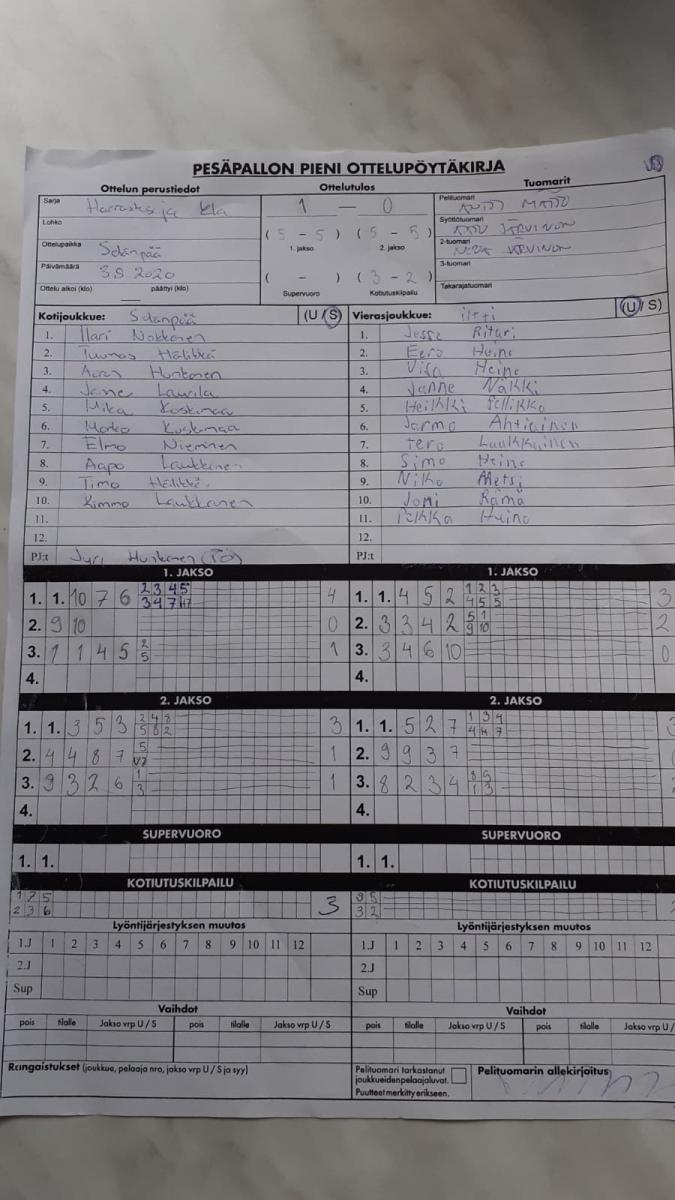 PESÄPALLON PIENI OTTELUPÖYTÄKIRJA
Ottelun perustiedot
Ottelutulos
Tuomarit
Sarja
Lohko
Ottelupaikka Selänpää
Päivämäärä 3.8 2020
Ottelu alkoi (klo) päättyi (klo)
1 — 0
( 5 - 5 ) ( 5 - 5 )
1. jakso 2. jakso
( - ) ( 3 - 2 )
Supervuoro Kotiutuskilpailu
Pelituomari
Syöttötuomari JÄRVINEN
2-tuomari
3-tuomari
Takarajatuomari
Kotijoukkue: Selänpää (U / S)
1. Ilari Nokkonen
2. Tuomas Hälikkä
3. Hunkonen
4. Janne Laurila
5. Mika Koskimaa
6. Marko Koskimaa
7. Elmo Nieminen
8. Aapo Laukkanen
9. Timo Hälikkä
10. Kimmo Laukkanen
11.
12.
PJ:t Jyri Hunkonen
Vierasjoukkue: (U / S)
1. Jesse
2. Eero Heino
3. Visa Heino
4. Janne Näkki
5. Heikki Pellikka
6. Jarmo Ahtiainen
7. Tero Laukkainen
8. Simo Heino
9. Niko Metsi
10. Joni Rämä
11. Pekka Heino
12.
PJ:t
1. JAKSO
1. 1. 10 7 6 2 3 4 5 4
3 4 7
2. 9 10 0
3. 1 1 4 5 2 1
5
4.
1. JAKSO
1. 1. 4 5 2 1 2 3 3
4 5 5
2. 3 3 4 2 5 1 2
9 10
3. 3 4 6 10 0
4.
2. JAKSO
1. 1. 3 5 3 2 4 8 3
5 8 2
2. 4 4 8 7 5 1
3. 9 3 2 6 1 1
3
4.
2. JAKSO
1. 1. 5 2 7 1 3 4
4 7
2. 9 9 3 7
3. 8 2 3 4
1 3
4.
SUPERVUORO
1. 1.
SUPERVUORO
1. 1.
KOTIUTUSKILPAILU
1 7 5 3
2 3 6
KOTIUTUSKILPAILU
9 5
3 2
Lyöntijärjestyksen muutos
1.J 1 2 3 4 5 6 7 8 9 10 11 12
2.J
Sup
Lyöntijärjestyksen muutos
1.J 1 2 3 4 5 6 7 8 9 10 11 12
2.J
Sup
Vaihdot
pois tilalle Jakso vrp U / S pois tilalle Jakso vrp U / S
Vaihdot
pois tilalle Jakso vrp U / S pois tilalle Jakso vrp U /
Rangaistukset (joukkue, pelaaja nro, jakso vrp U / S ja syy)
Pelituomari tarkastanut
joukkueidenpelaajaluvat.
Puutteet merkitty erikseen.
Pelituomarin allekirjoitus